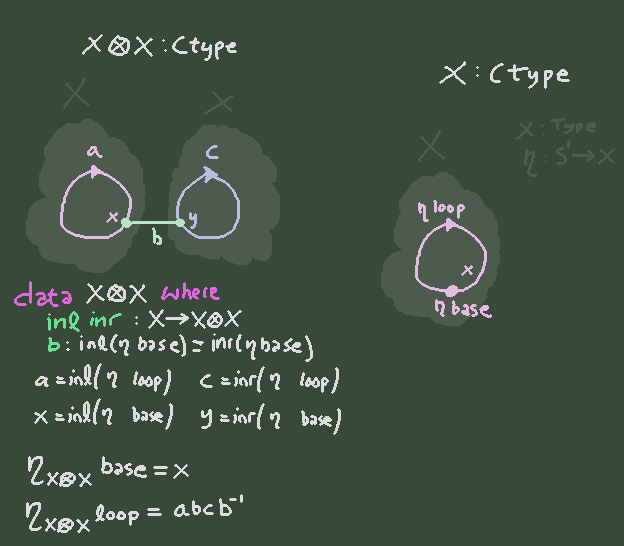 X⊗X : Ctype
X X
a c
x y
b
data X⊗X where
inl inr : X→X⊗X
b : inl(η base) = inr(η base)
a = inl(η loop) c = inr(η loop)
x = inl(η base) y = inr(η base)
η_{X⊗X} base = x
η_{X⊗X} loop = abcb⁻¹
X : Ctype
X : Type
η : S¹→X
X
η loop
x
η base